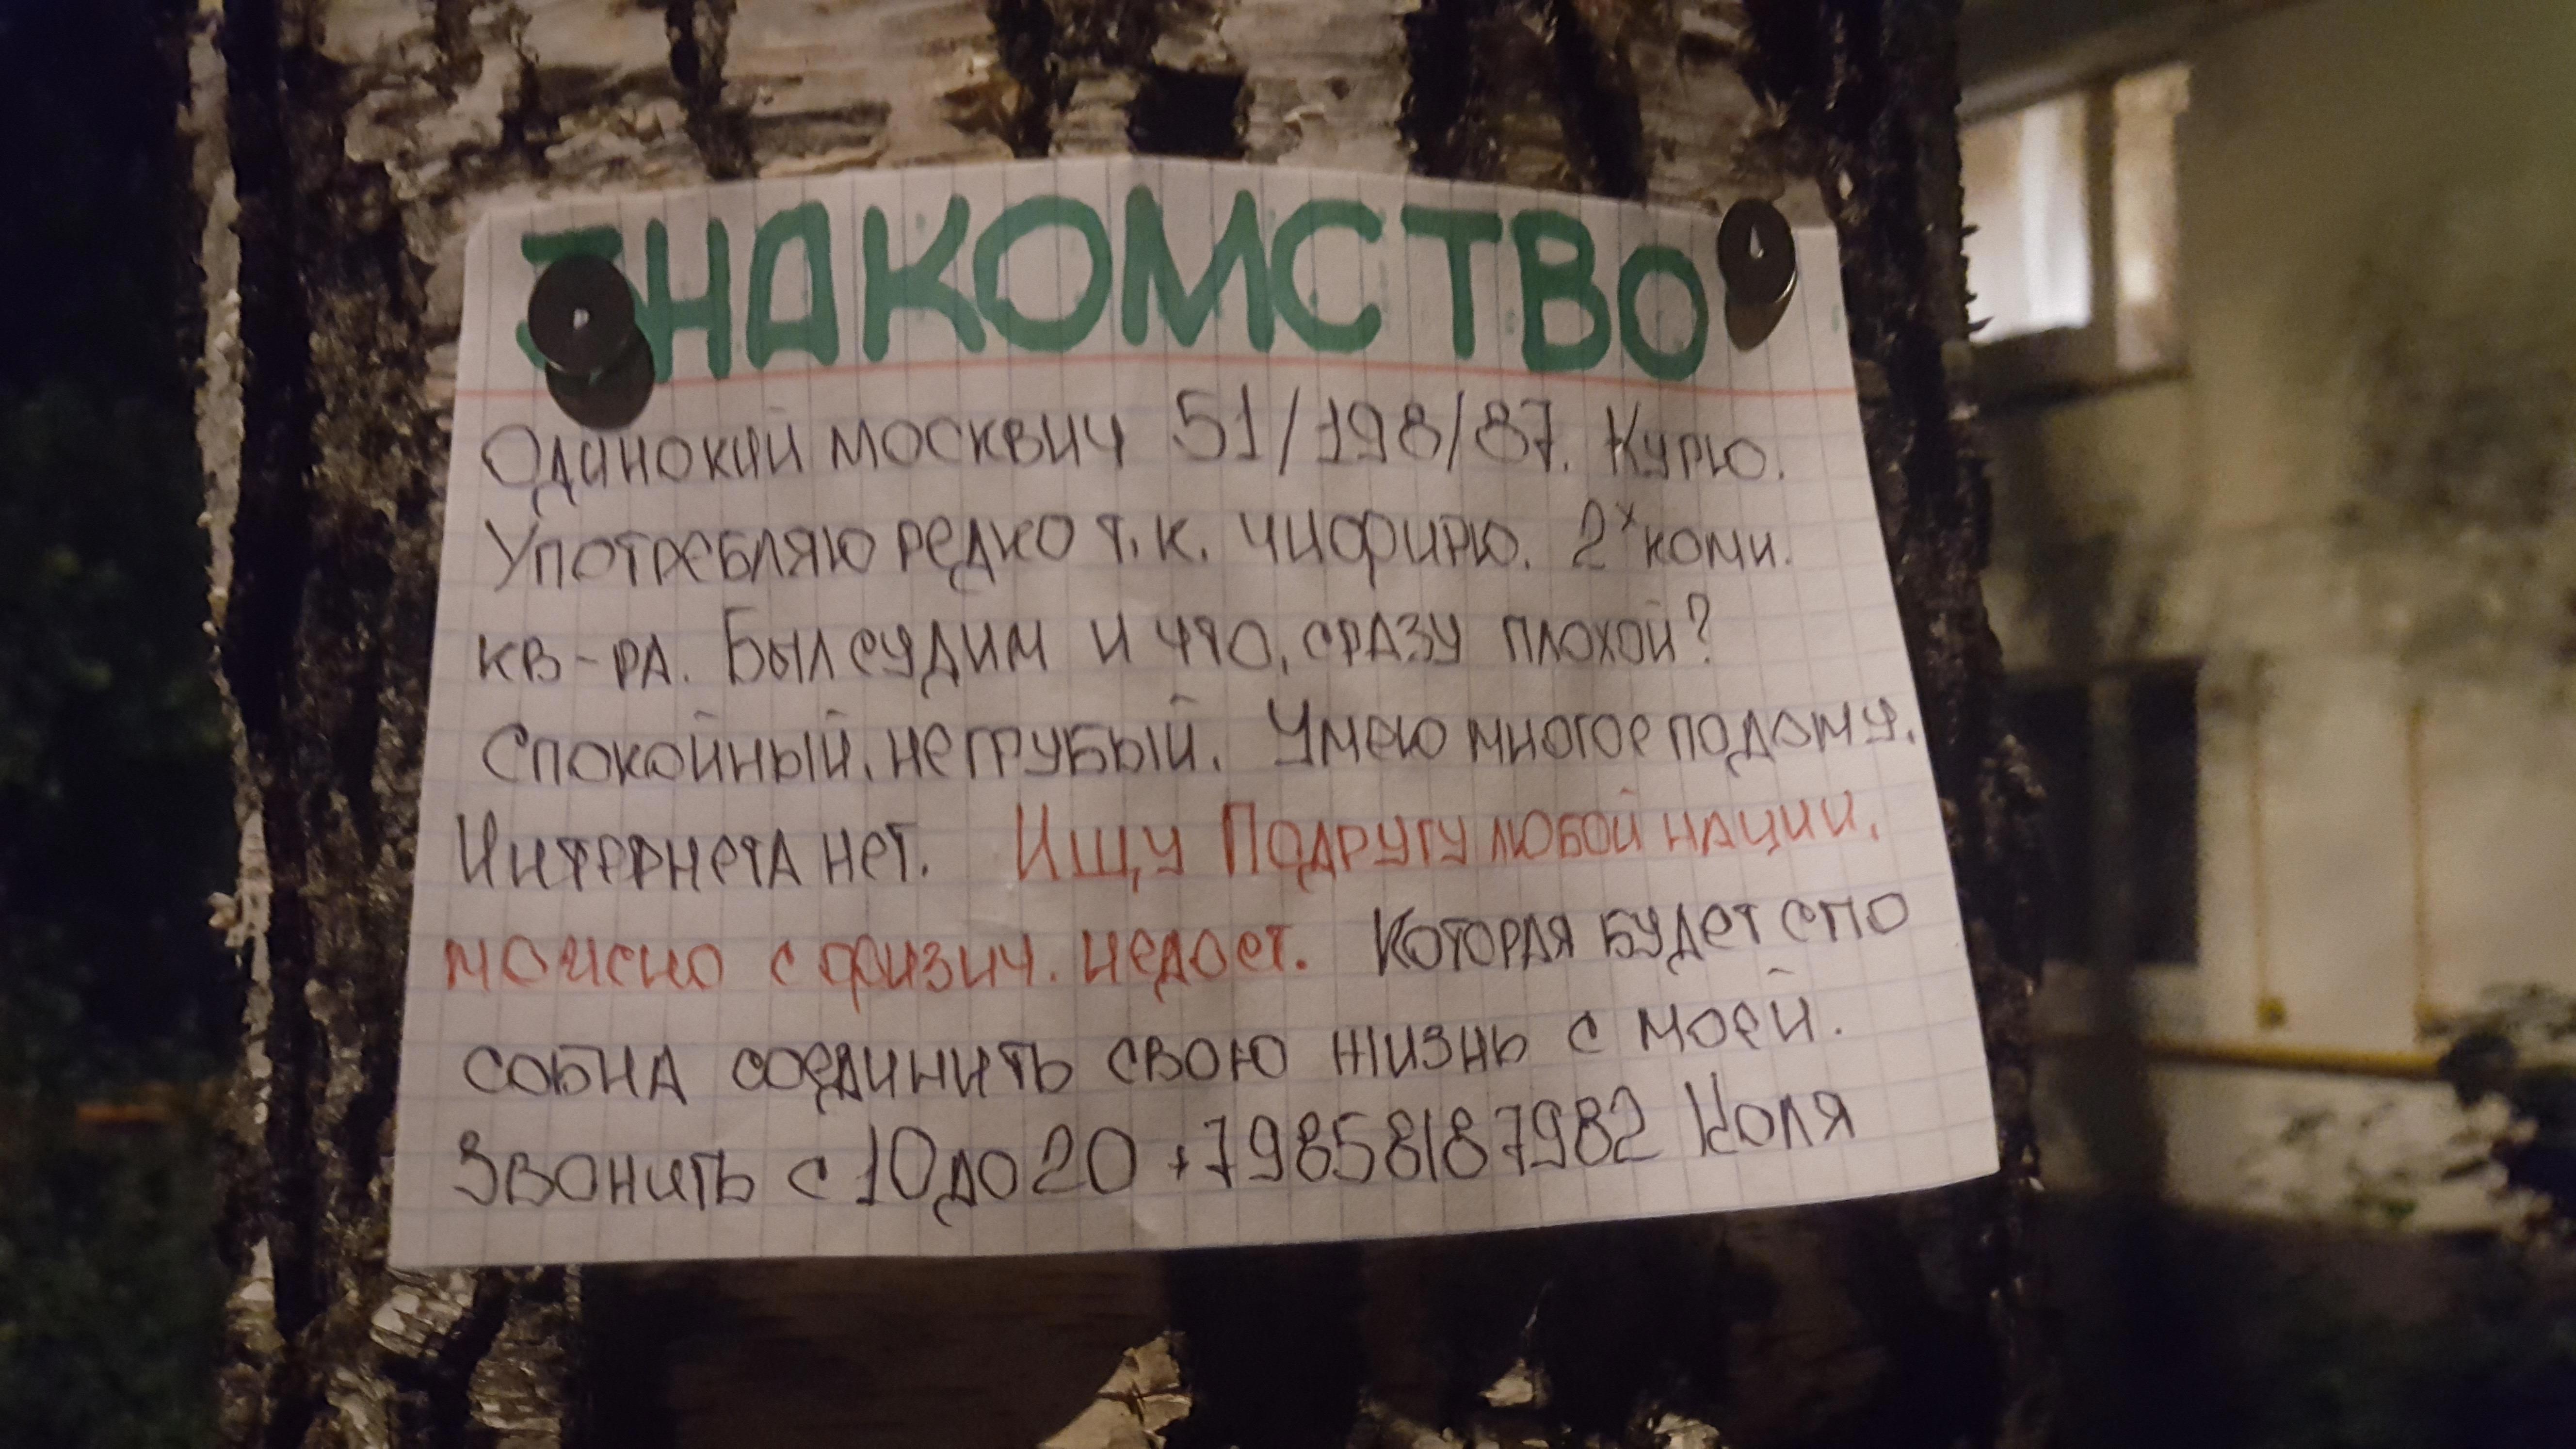 ЗНАКОМСТВО
Одинокий москвич 51/198/87. Курю.
Употребляю редко т.к. чифирю. 2х комн.
кв-ра. Был судим и что, сразу плохой?
Спокойный, не грубый. Умею многое по дому.
Интернета нет. Ищу Подругу любой нации,
можно с физич. недост. Которая будет спо
собна соединить свою жизнь с моей.
Звонить с 10 до 20 +79858187982 Коля